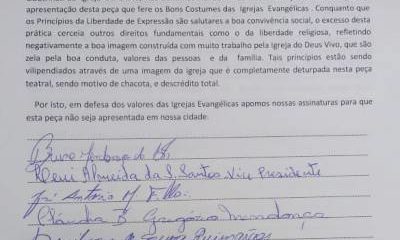 apresentação desta peça que fere os Bons Costumes das Igrejas Evangélicas . Conquanto que
os Princípios da Liberdade de Expressão são salutares a boa convivência social, o excesso desta
prática cerceia outros direitos fundamentais como o da liberdade religiosa, refletindo
negativamente a boa imagem construída com muito trabalho pela Igreja do Deus Vivo, que são
zela pela boa conduta, valores das pessoas e da família. Tais princípios estão sendo
vilipendiados através de uma imagem da igreja que é completamente deturpada nesta peça
teatral, sendo motivo de chacota, e descrédito total.
Por isto, em defesa dos valores das Igrejas Evangélicas apomos nossas assinaturas para que
esta peça não seja apresentada em nossa cidade.
Almeida da S. Santos Vice Presidente
Antonio M.
Cláudia B. Gregório Mendonça